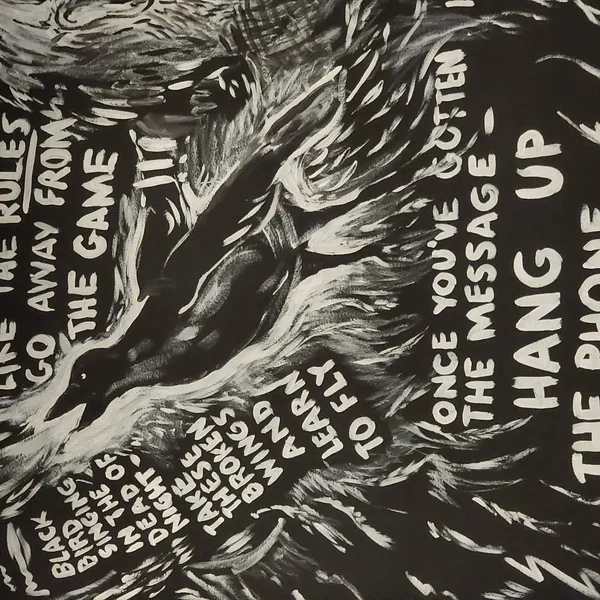 LIKE THE RULES
GO AWAY FROM
THE GAME
BLACK
BIRD
SINGING
IN THE
DEAD OF
NIGHT-
TAKE
THESE
BROKEN
WINGS
AND
LEARN
TO FLY
ONCE YOU'VE GOTTEN
THE MESSAGE -
HANG UP
THE PHONE